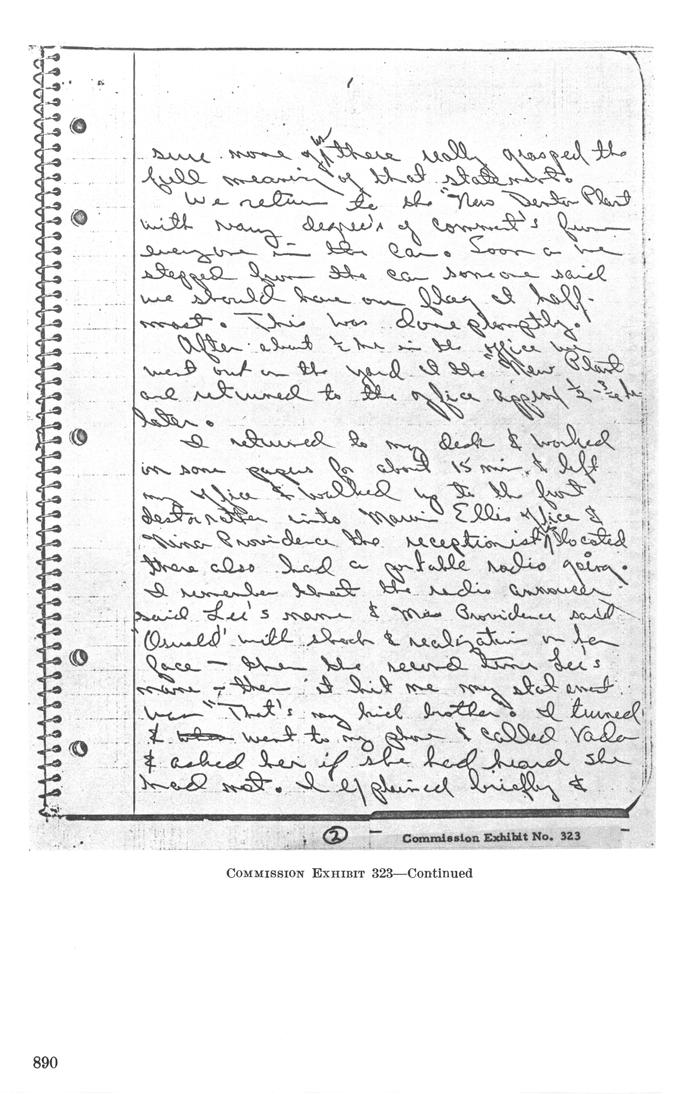 sure none of us there really grasped the
full meaning of that statement.
We return to the "New Denton Plant
with many degree's of comment's from
everyone in the car. Soon a we
stepped from the car someone said
we should have our flag at half-
mast. This was done promptly.
After about ½ hr in the office we
went out on the yard at the "New Plant
and returned to the office approx ½ - ¾ hr
later.
I returned to my desk & worked
on some papers for about 15 min. & left
my office & walked up to the front
desk rather into Office &
Nina Providence the receptionist located
there also had a portable radio going.
I remember that the radio announcer
said Lee's name & Miss Providence said
"Oswald' with shock & realization on her
face - then the second time Lee's
name - then it hit me my statement
was "That's my kid brother". I turned
& went to my phone & called Vada
& asked her if she had heard she
had not. I explained briefly &
2
Commission Exhibit No. 323
COMMISSION EXHIBIT 323—Continued
890